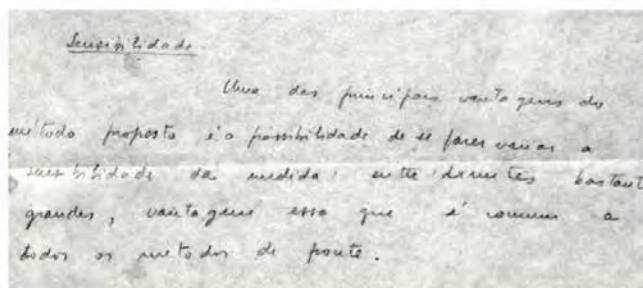 Sensibilidade.
Uma das principais vantagens do
método proposto é a possibilidade de se fazer variar a
sensibilidade da medida entre limites bastante
grandes, vantagem essa que é comum a
todos os metodos de ponte.